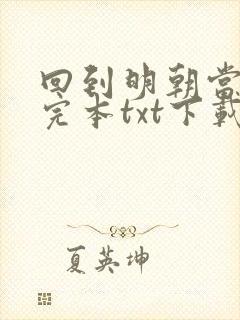 回到明朝当
完本txt下载
夏英坤